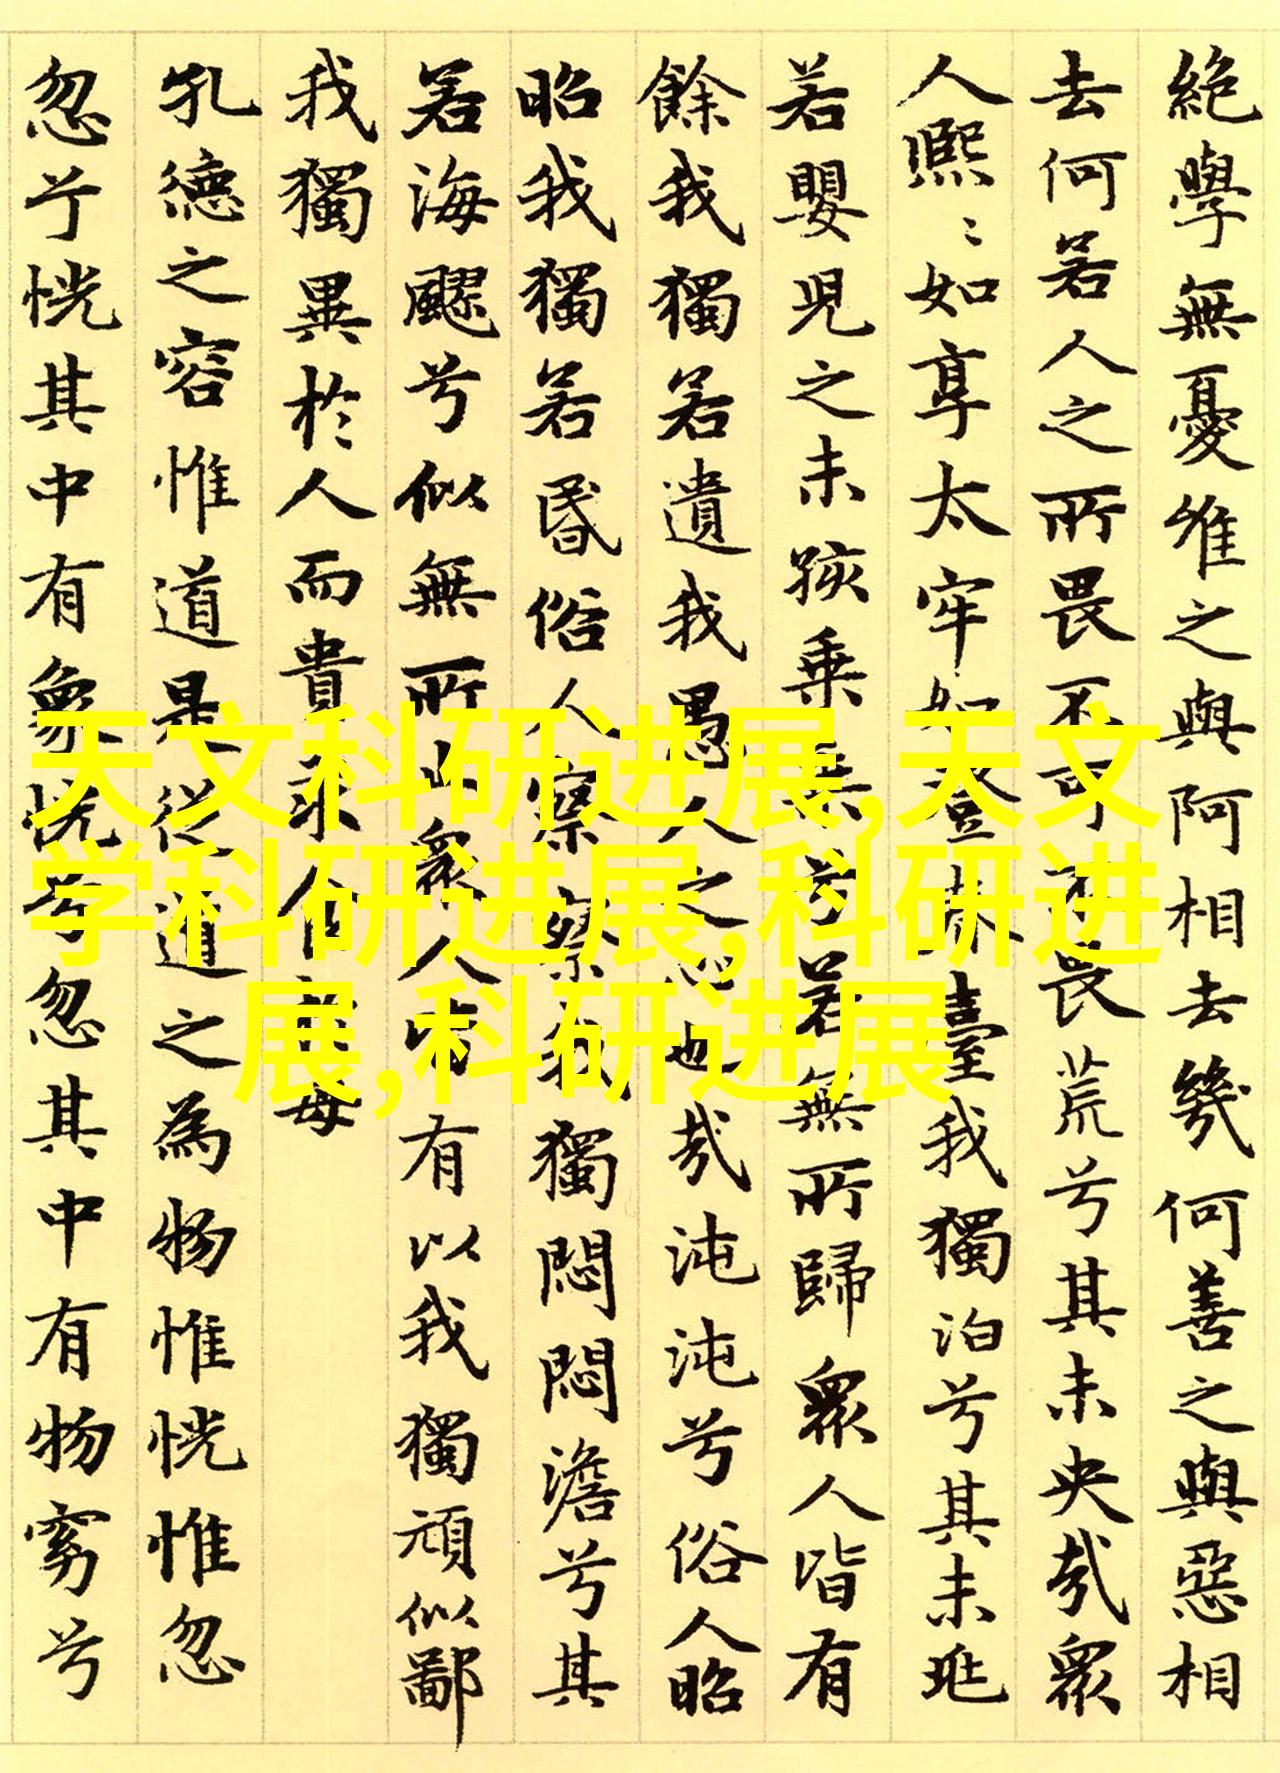 絶學無憂唯之與阿相去幾何善之與惡相
去何若人之所畏不可不畏荒兮其未央哉衆
人熙〻如享太牢如登春臺我獨泊兮其未兆
若嬰兒之未孩乗乗兮若無所歸衆人皆有
餘我獨若遺我愚人之心也哉沌沌兮俗人昭
昭我獨若昏俗人察察我獨悶悶澹兮其
若海飂兮似無所止衆人皆有以我獨頑似鄙
我獨異於人而貴求食於母
孔德之容惟道是從道之為物惟恍惟忽
忽兮恍其中有象恍兮忽其中有物窈兮
天文科研进展,天文
学科研进展,科研进
展,科研进展